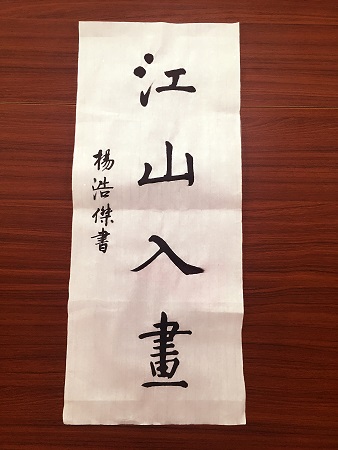 江山入畫
楊浩傑書